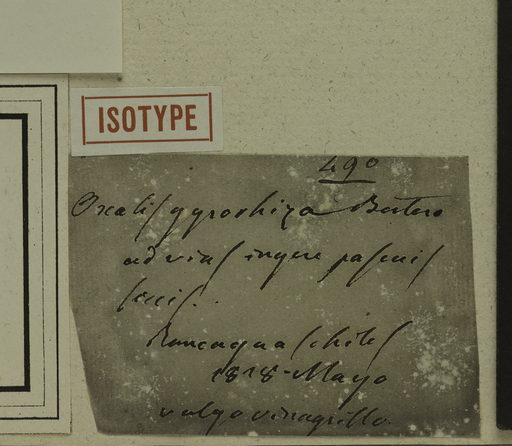 ISOTYPE
490
Oxalis gyrorhiza Bertero
ad vias in pascuis
siccis.
Rancagua Chile
1828 - Mayo
vulgo vinagrillo